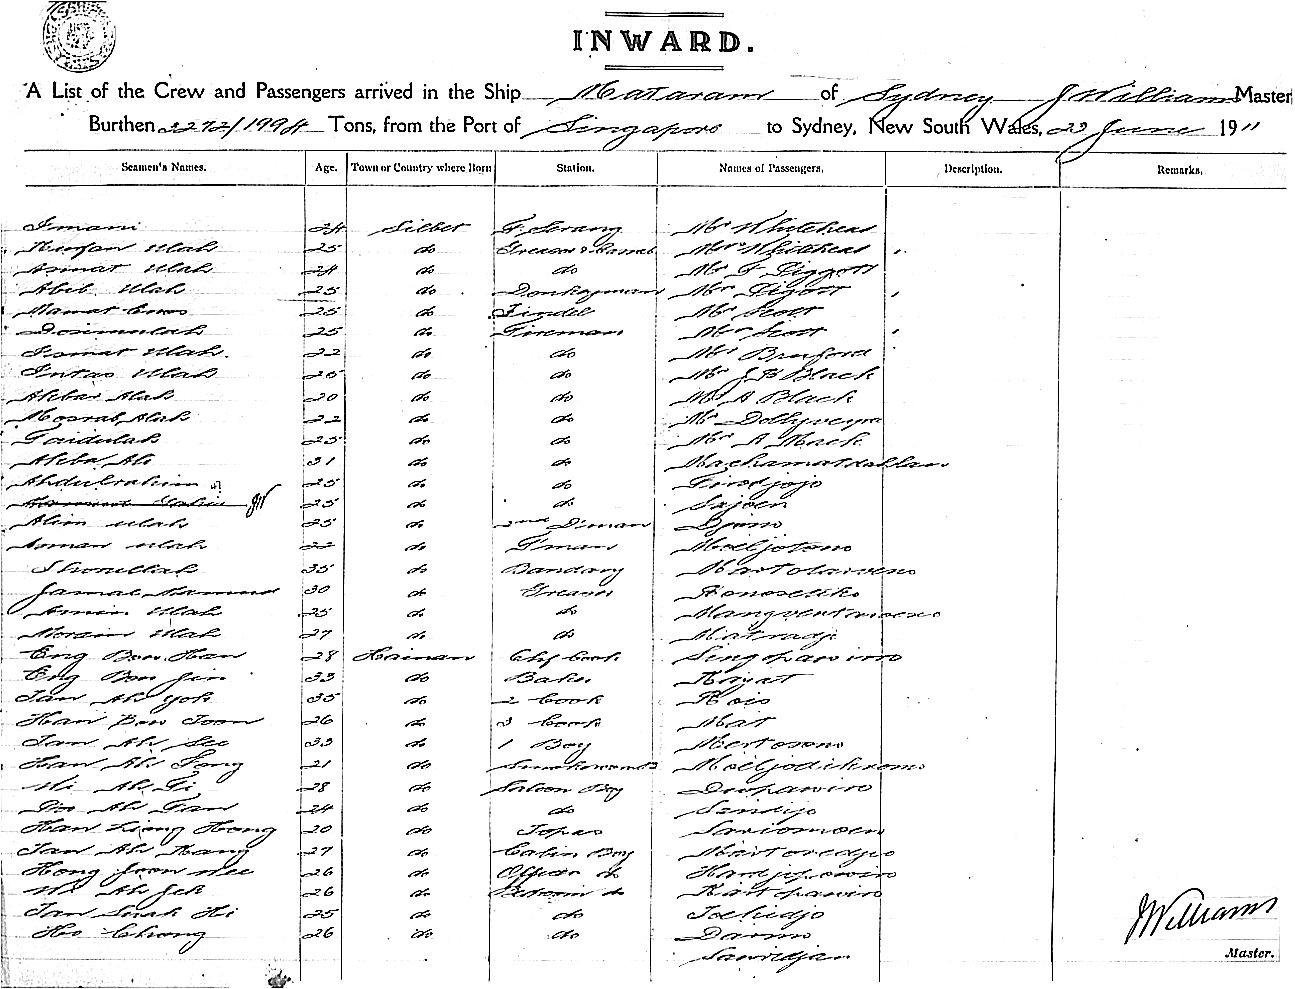 INWARD.
A List of the Crew and Passengers arrived in the Ship Mataram of Sydney J Williams Master
Burthen 2272/1994 Tons, from the Port of Singapore to Sydney, New South Wales, 23 June 1911
Seamen's Names. Age. Town or Country where Born Station. Names of Passengers. Description. Remarks.
Imani 24 Silhet F. Serang Mr Whitehead
Ulah 25 do Greaser & Mrs Whitehead
Asmat Ulah 24 do do Mr F Piggott
Abel Ulah 25 do Donkeyman Mrs Pigott
Mamat 25 do Tindel Mr Scott
25 do Fireman Mrs Scott
Ismat Ulah. 22 do do Mrs Bruford
Intas Ulah 25 do do Mr J B Black
Akbar Alah 20 do do Mr A Black
Mosrab Alah 22 do do Mr
Toridulah 25 do do Mr A Mack
Akba Ali 31 do do
Abdulrahim 25 do do Tirodjojo
JW 25 do do Sajoen
Alim Ulah 25 do 2nd D'man
Asman Ulah 22 do F'man Moeljotomo
35 do Bandary
Jamal Mamud 30 do Greaser
Amin Ulah 25 do do
Morain Ulah 27 do do Matradji
Eng Bon Han 28 Hainan Chf Cook Singopawiro
Eng Bon Jin 33 do Baker Kayat
Tan Ah Yok 35 do 2 Cook Kois
Han Bon Toon 26 do 3 Cook Mat
Tan Ah See 33 do 1 Boy Mertosono
Han Ah Fong 21 do Moeljodikromo
Wi Ah Ti 28 do Saloon Boy Dipawiro
Ah Tan 24 do do Sendijo
Han Liong Hong 20 do Topas Sariomoen
Tan Ah Kang 27 do Cabin Boy Mertoredjo
Hong Joon Wee 26 do Officer do Hardjopawiro
Wi Ah Jek 26 do do Kartpawiro
Tan Suah Hi 25 do do Tochidjo
Ho Chong 26 do do Darmo
Sawidjan
J Williams
Master.